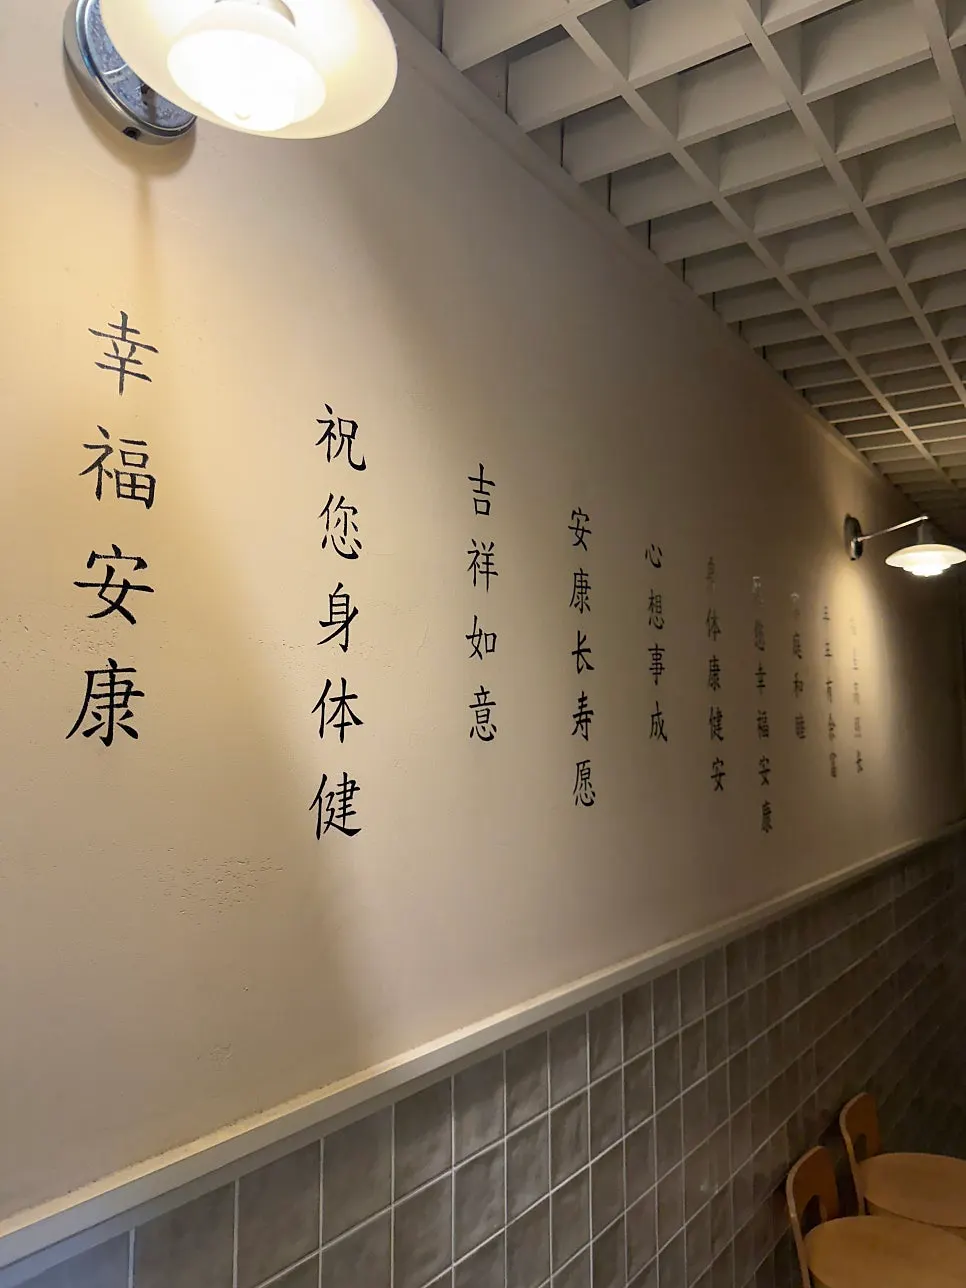 幸福安康
祝您身体健
吉祥如意
安康长寿愿
心想事成
身体康健安
您幸福安康
庭和睦
有余富